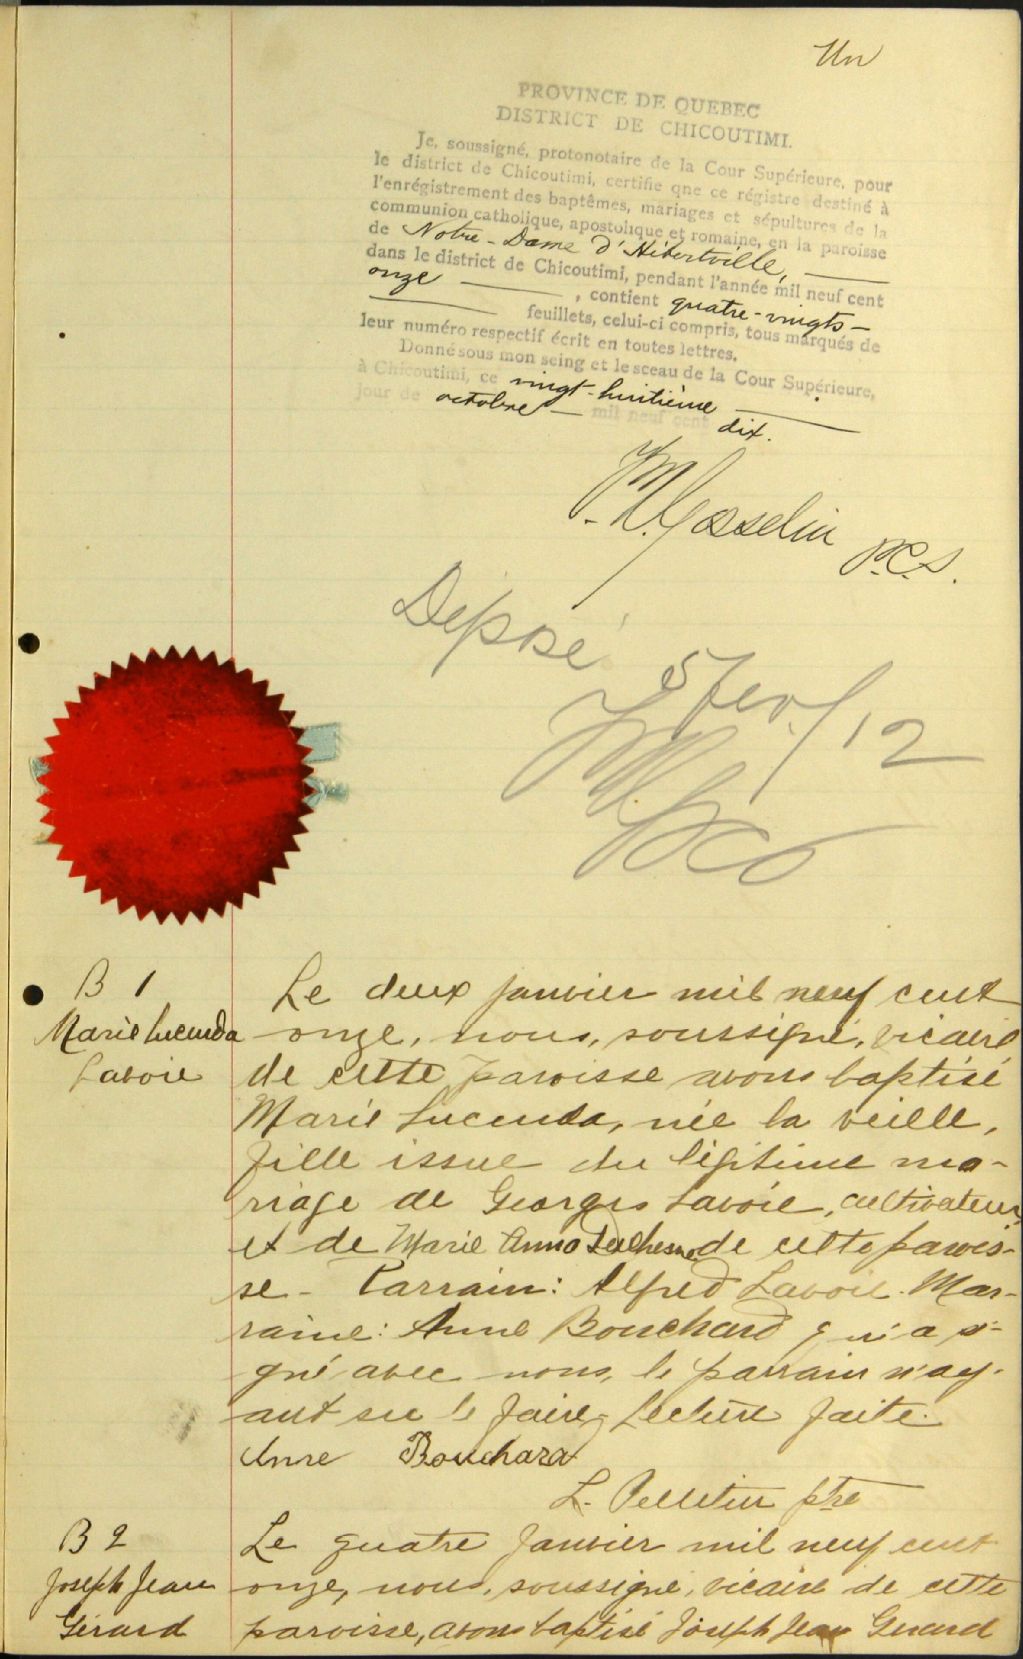 Un
PROVINCE DE QUEBEC
DISTRICT DE CHICOUTIMI.
Je, soussigné, protonotaire de la Cour Supérieure, pour
le district de Chicoutimi, certifie qne ce régistre destiné à
l'enrégistrement des baptêmes, mariages et sépultures de la
communion catholique, apostolique et romaine, en la paroisse
de Notre-Dame d'Hébertville,
dans le district de Chicoutimi, pendant l'année mil neuf cent
onze , contient quatre-vingts-
feuillets, celui-ci compris, tous marqués de
leur numéro respectif écrit en toutes lettres.
Donné sous mon seing et le sceau de la Cour Supérieure,
à Chicoutimi, ce vingt-huitième
jour de octobre mil neuf cent dix.
Gosselin P.C.S.
Déposé 5 fev./12
B 1
Marie Lucinda
Lavoie
Le deux janvier mil neuf cent
onze, nous, soussigné, vicaire
de cette paroisse avons baptisé
Marie Lucinda, née la veille,
fille issue du légitime ma-
riage de Georges Lavoie, cultivateur,
et de Marie Anna Duchesne de cette parois-
se - Parrain: Alfred Lavoie. Mar-
raine: Anne Bouchard qui a si-
gné avec nous, le parrain n'ay-
ant su le faire, Lecture faite.
Anne Bouchard
L. Pelletier ptre
B 2
Joseph Jean
Gérard
Le quatre janvier mil neuf cent
onze, nous, soussigné, vicaire de cette
paroisse, avons baptisé Joseph Jean Gérard